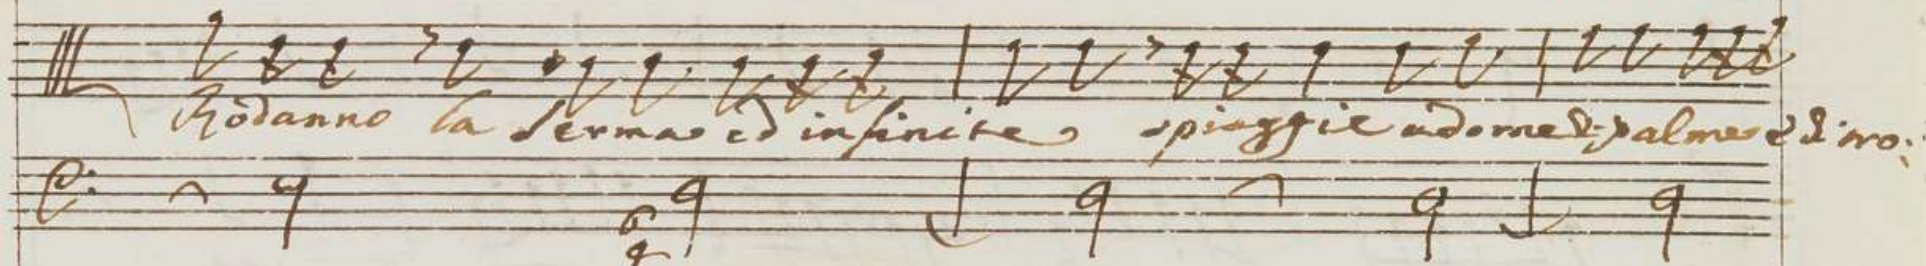 Ròdanno la ferma ed infinite spiaggie adorne di palme e di mo: